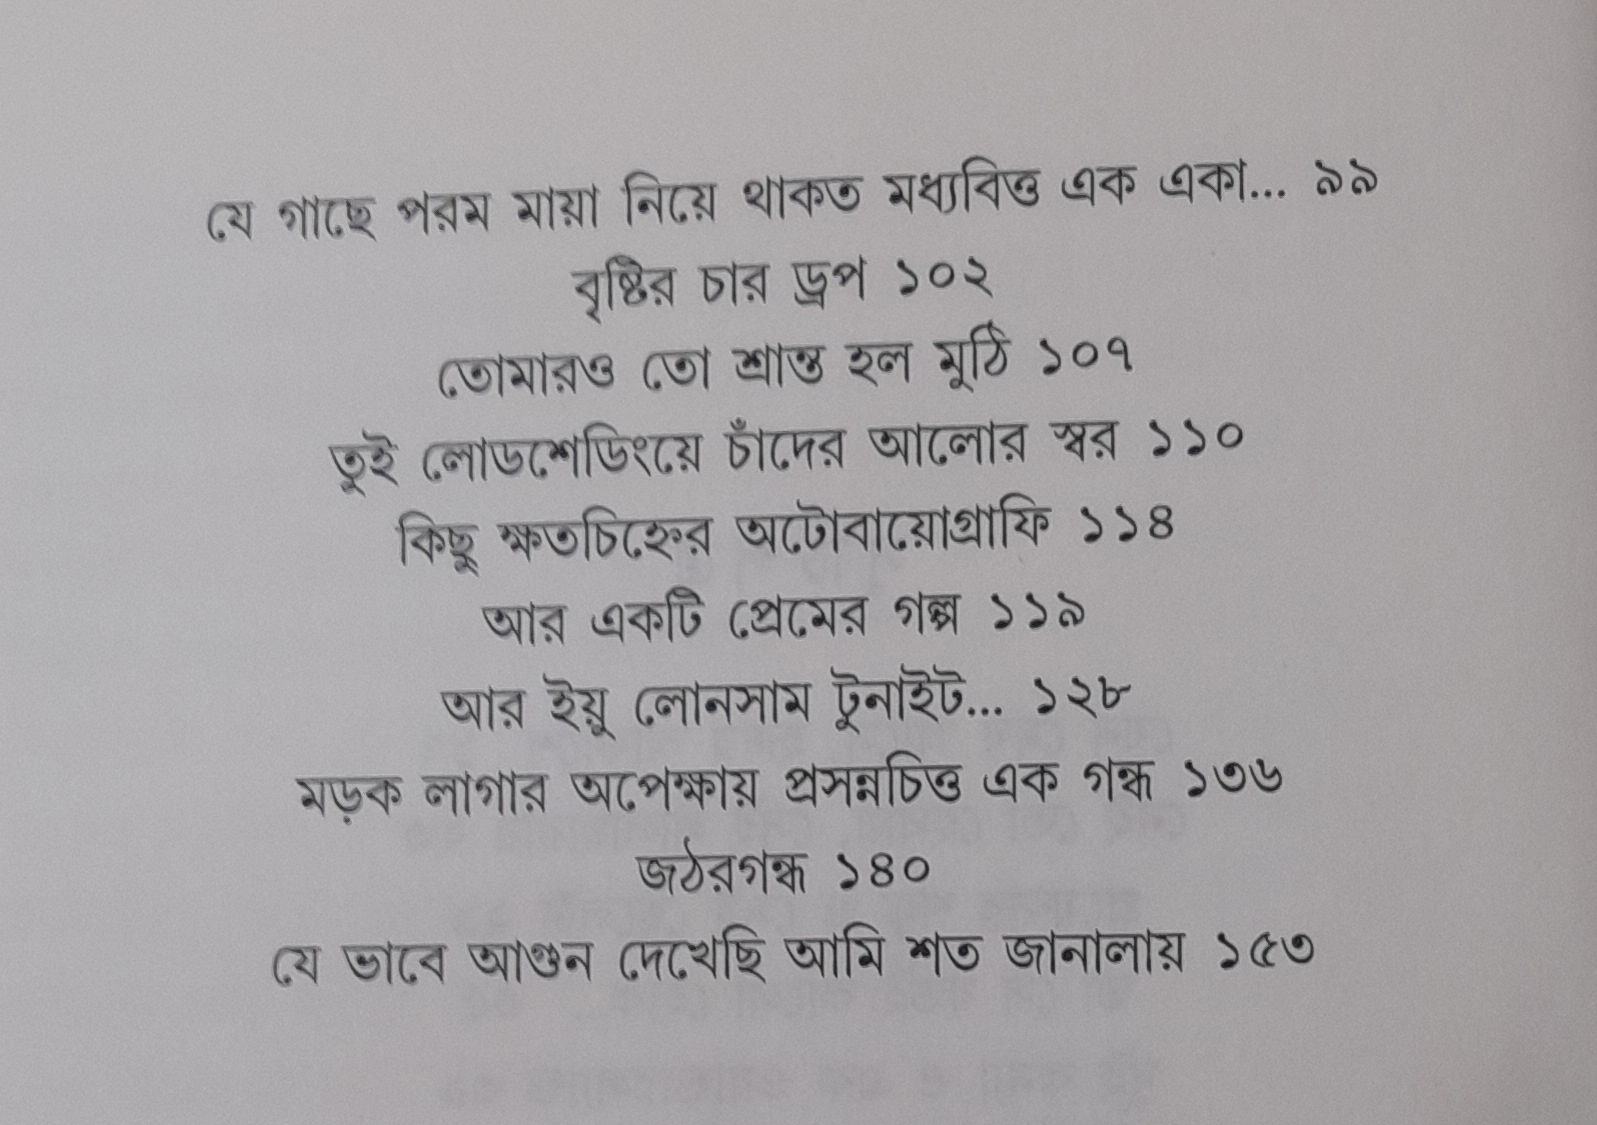 যে গাছে পরম মায়া নিয়ে থাকত মধ্যবিত্ত এক একা... ৯৯
বৃষ্টির চার ড্রপ ১০২
তোমারও তো শ্রান্ত হল মুঠি ১০৭
তুই লোডশেডিংয়ে চাঁদের আলোর স্বর ১১০
কিছু ক্ষতচিহ্নের অটোবায়োগ্রাফি ১১৪
আর একটি প্রেমের গল্প ১১৯
আর ইয়ু লোনসাম টুনাইট... ১২৮
মড়ক লাগার অপেক্ষায় প্রসন্নচিত্ত এক গন্ধ ১৩৬
জঠরগন্ধ ১৪০
যে ভাবে আগুন দেখেছি আমি শত জানালায় ১৫৩